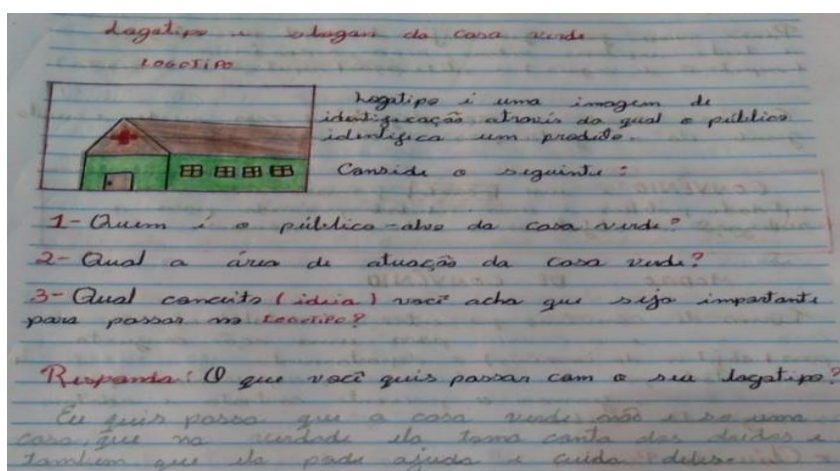 Logotipo e slogan da casa verde
LOGOTIPO
Logotipo é uma imagem de
identificação através da qual o público
identifica um produto.
Conside o seguinte:
1- Quem é o público-alvo da casa verde?
2- Qual a área de atuação da casa verde?
3- Qual conceito (ideia) você acha que seja importante
para passar no LOGOTIPO?
Responda: O que você quis passar com o seu logotipo?
Eu quis passa que a casa verde não é so uma
casa, que na verdade ela toma conta dos doidos e
tambem que ela pode ajuda e cuida deles.